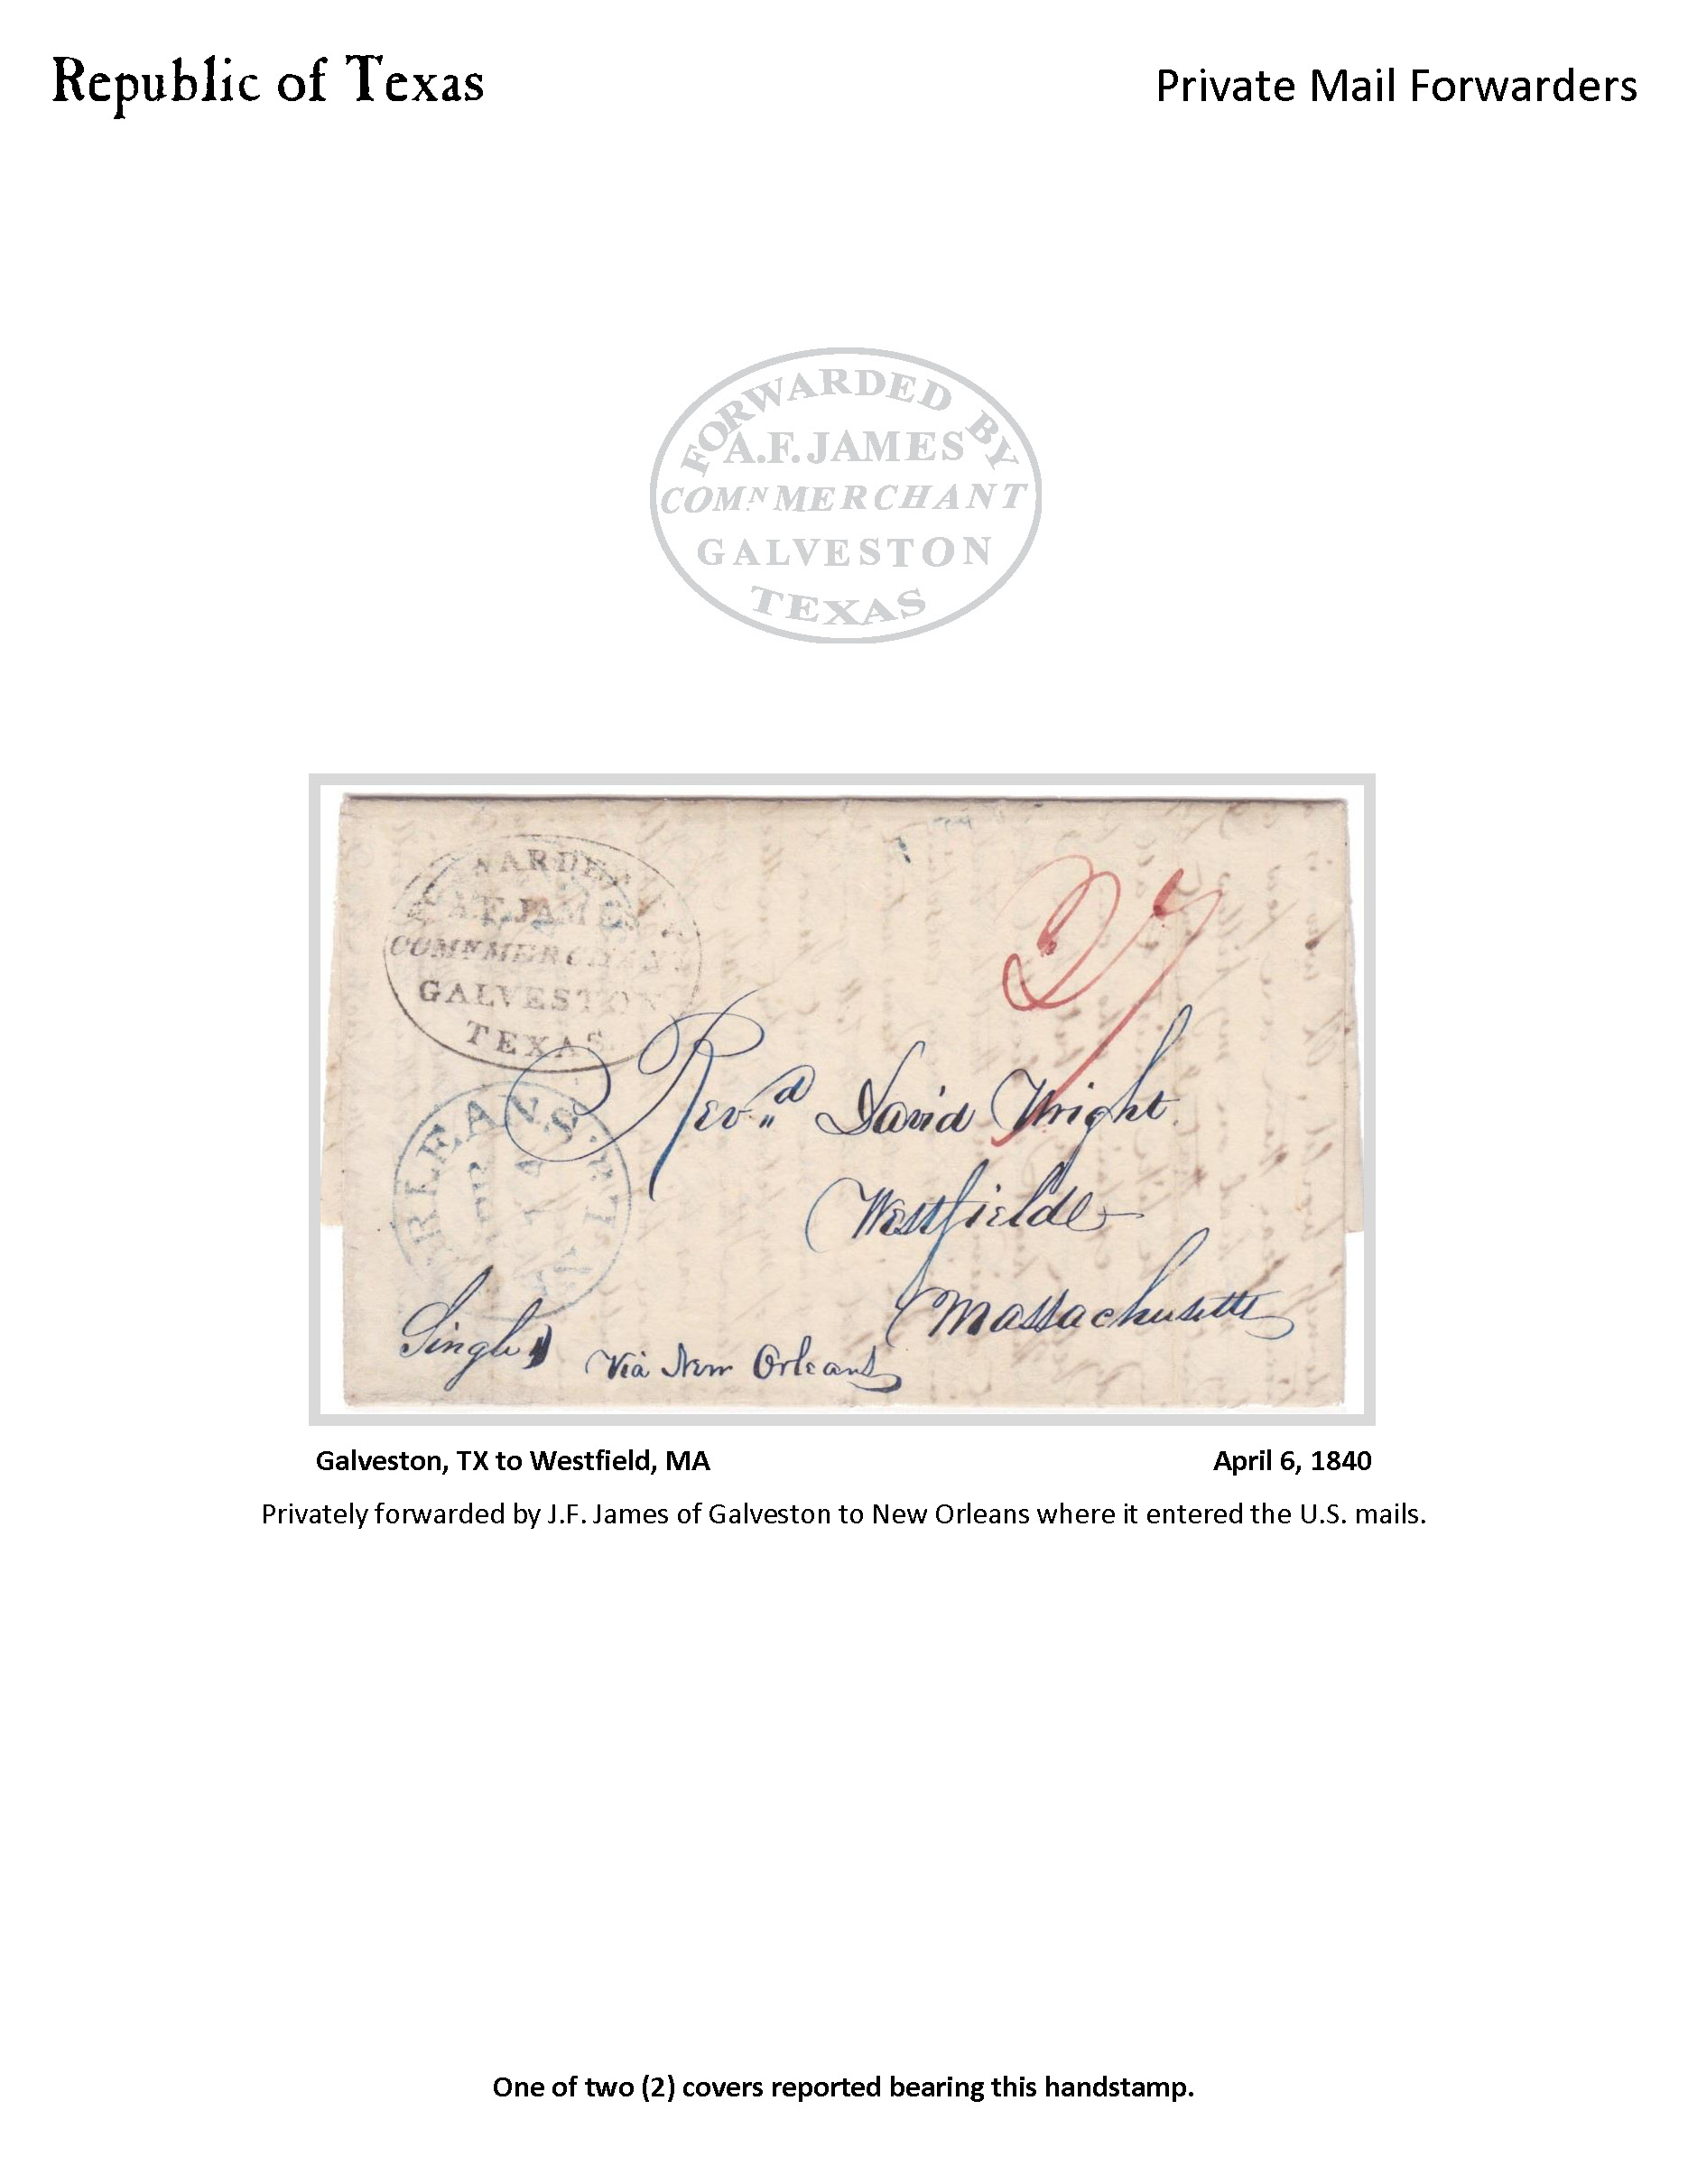 Republic of Texas
Private Mail Forwarders
FORWARDED BY
A.F. JAMES
COMN. MERCHANT
GALVESTON
TEXAS
WARDE
A.F. JAMES
COMN MERCHANT
GALVESTON
TEXAS
RLEANS
Revd David Wright
Westfield
Massachusetts
Single
Via New Orleans
Galveston, TX to Westfield, MA
April 6, 1840
Privately forwarded by J.F. James of Galveston to New Orleans where it entered the U.S. mails.
One of two (2) covers reported bearing this handstamp.